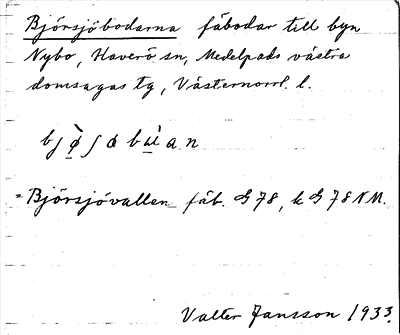 Björsjöbodarna fäbodar till byn
Nybo, Haverö sn, Medelpads västra
domsagas tg, Västernorrl. l.
bjø̀ʃøbùan
= Björsjövallen fäb. G 78, k G 78 NM.
Valter Jansson 1933.